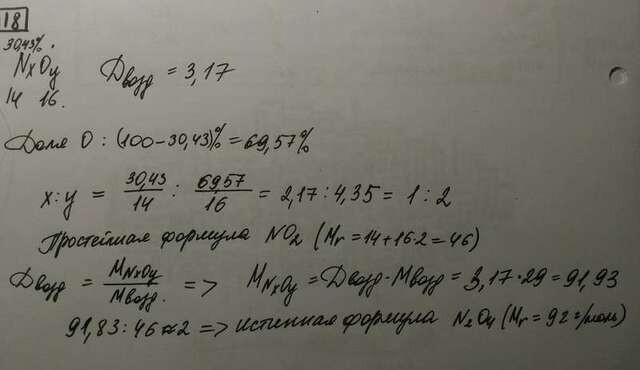 18
30,43%.
NxOy Dвозд = 3,17
14 16.
Доля O : (100-30,43)% = 69,57%
x:y = 30,43/14 : 69,57/16 = 2,17 : 4,35 = 1 : 2
Простейшая формула NO2 (Mr = 14+16·2 = 46)
Dвозд = MNxOy/Mвозд. => MNxOy = Dвозд·Mвозд = 3,17·29 = 91,93
91,83 : 46 ≈ 2 => истинная формула N2O4 (Mr = 92 г/моль)